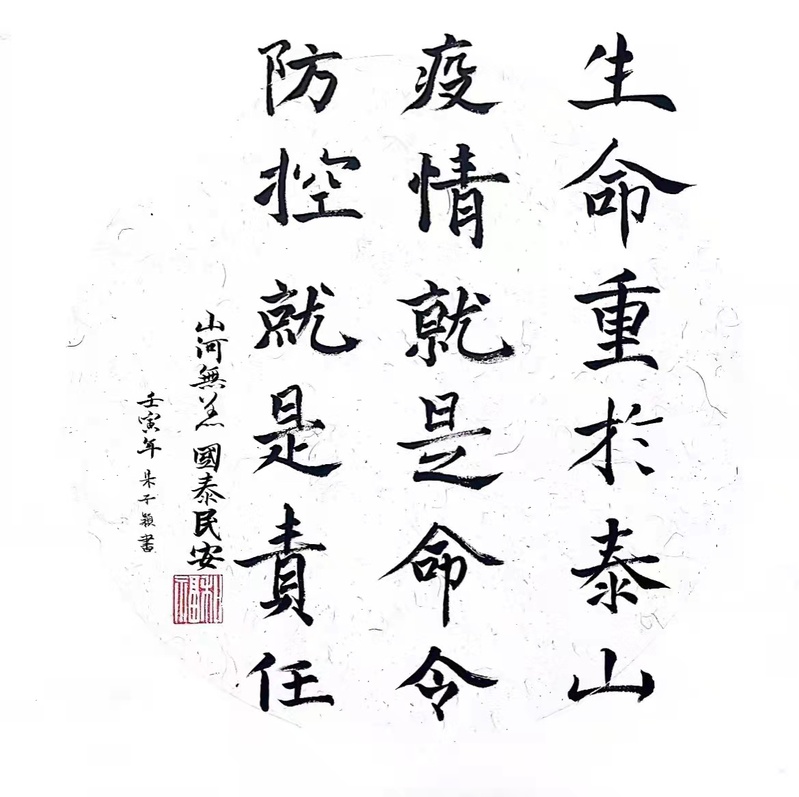 生命重於泰山
疫情就是命令
防控就是責任
山河無恙 國泰民安
壬寅年 朱子穎書